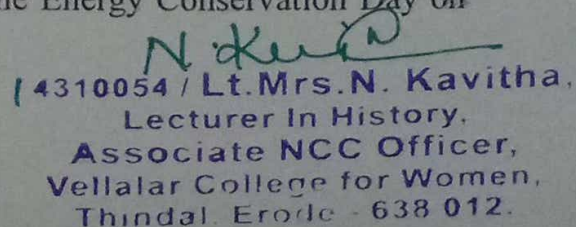 Energy Conservation Day on
N. Kavi
14310054 / Lt.Mrs.N. Kavitha,
Lecturer In History,
Associate NCC Officer,
Vellalar College for Women,
Thindal, Erode - 638 012.